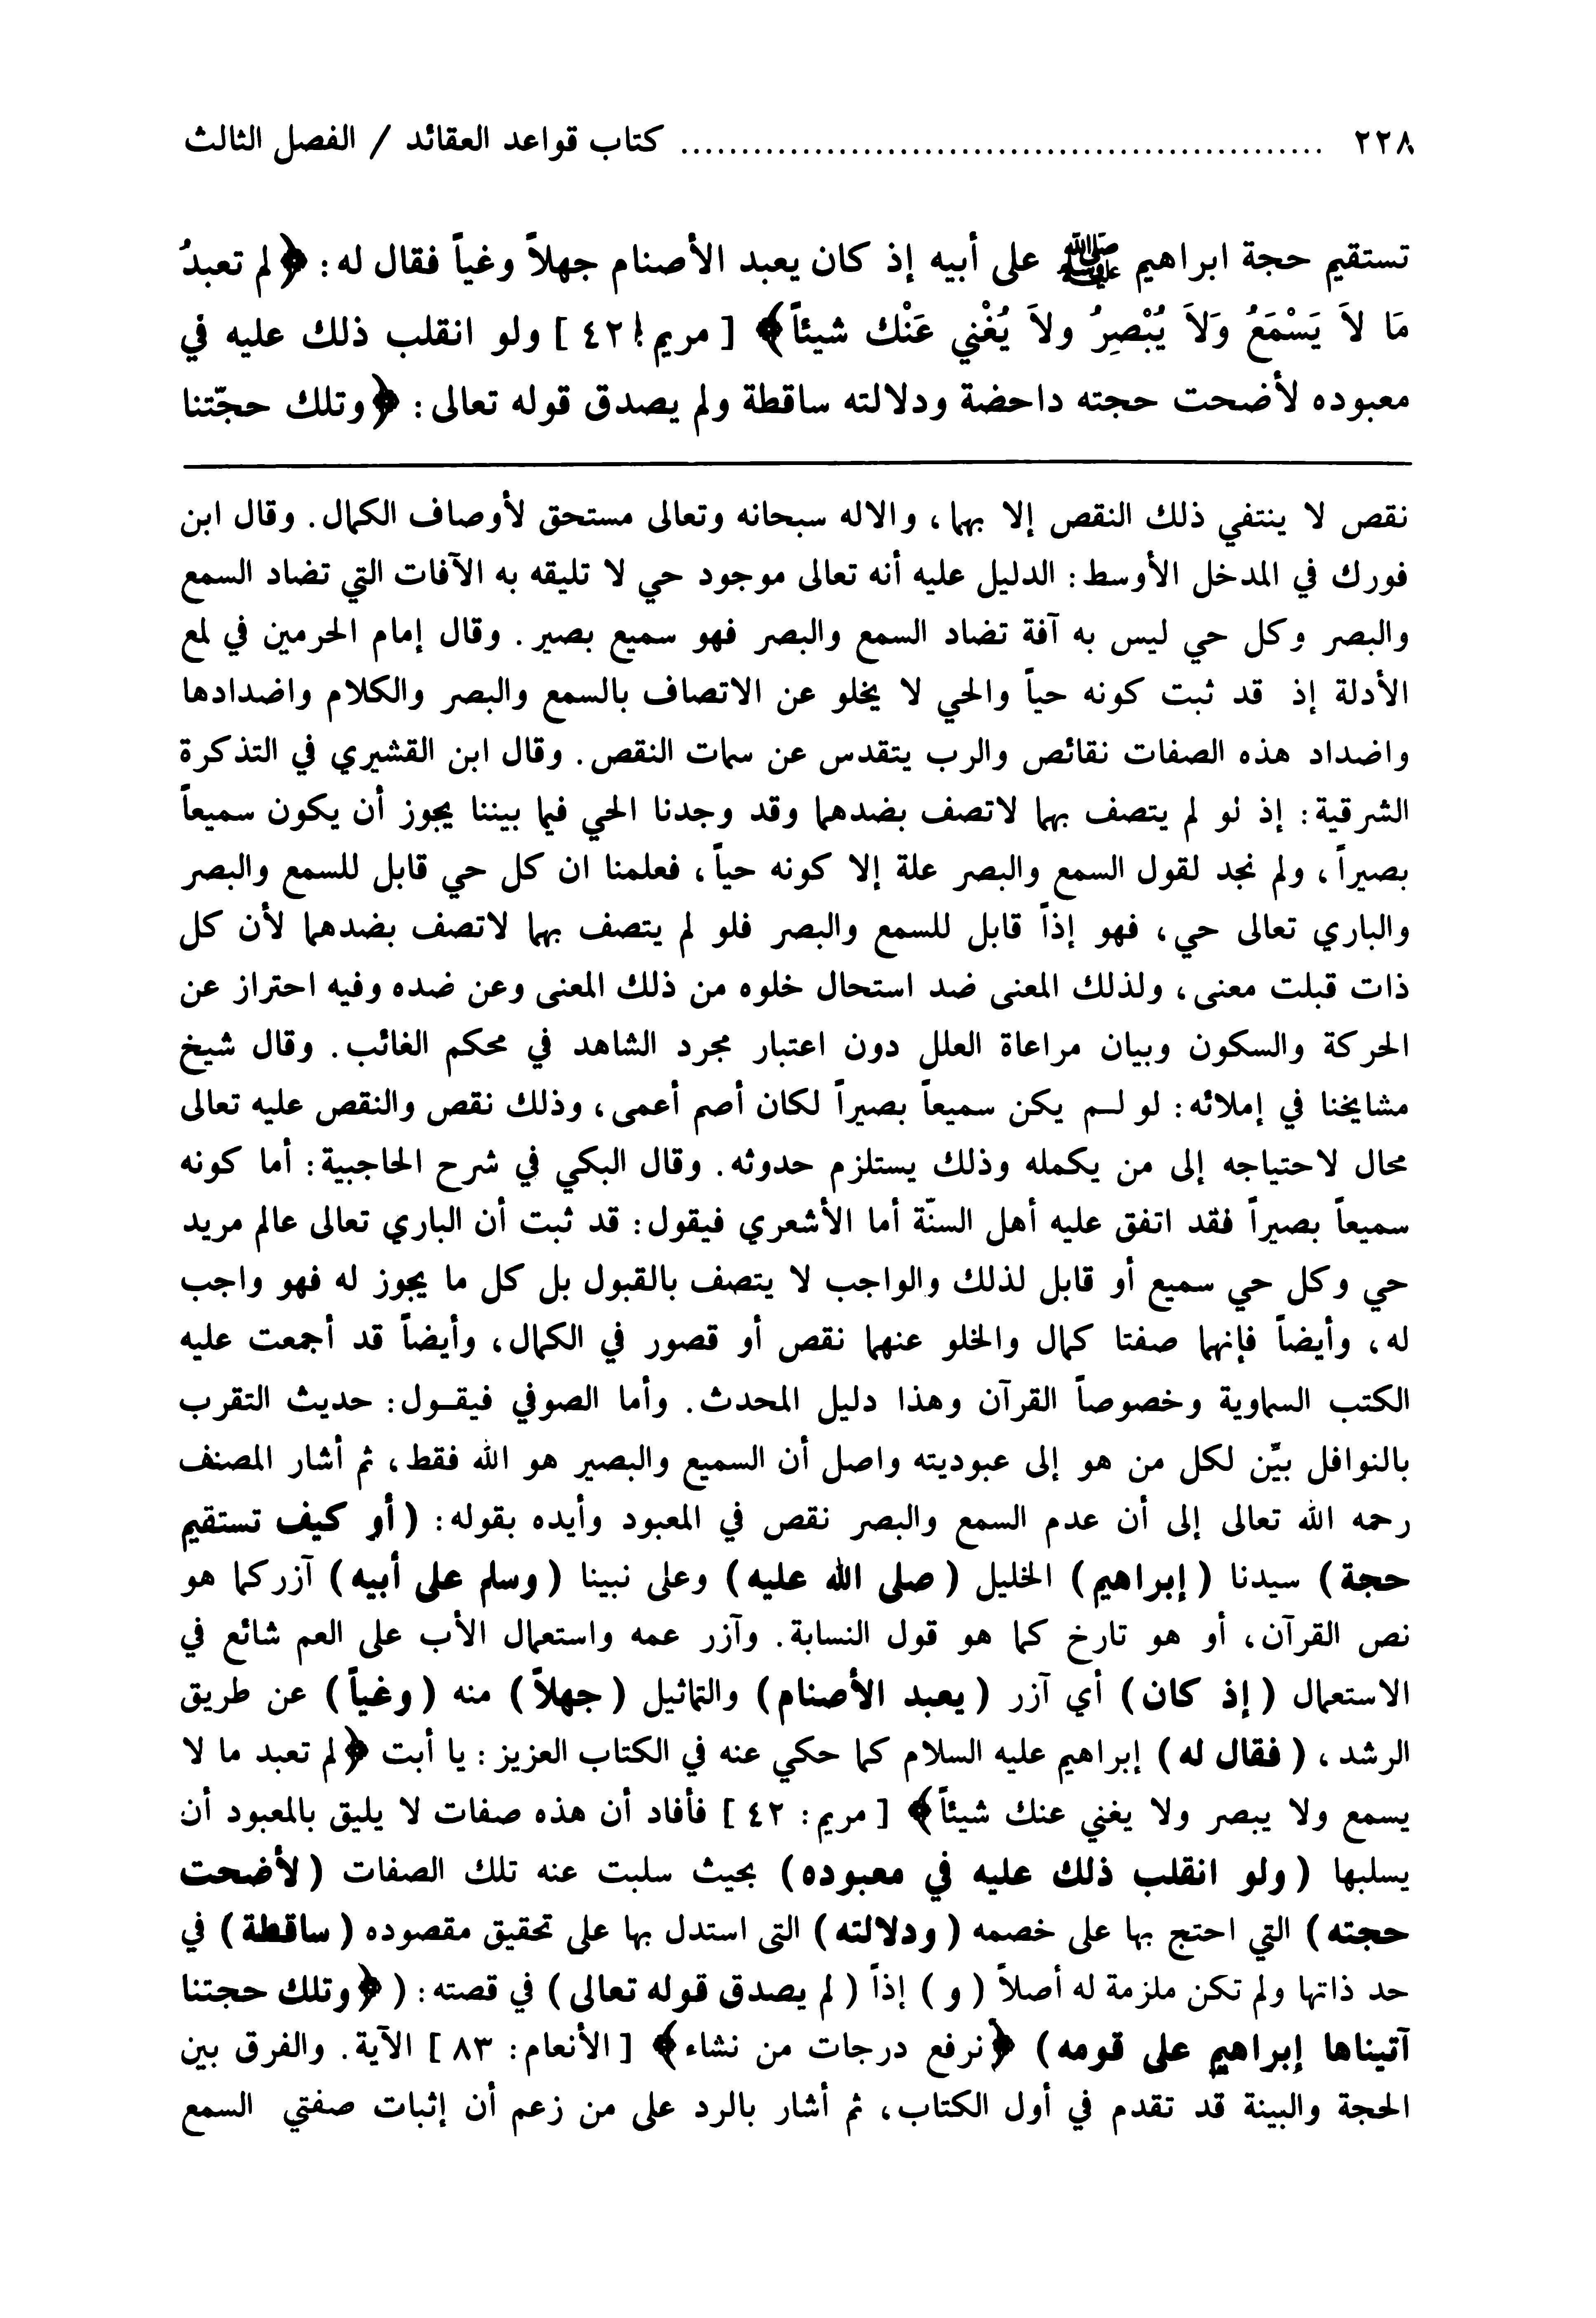 ٢٢٨ ..................................................... كتاب قواعد العقائد / الفصل الثالث
تستقيم حجة ابراهيم ﷺ على أبيه إذ كان يعبد الأصنام جهلاً وغياً فقال له: ﴿لم تعبدُ
مَا لاَ يَسْمَعُ وَلاَ يُبْصِرُ ولاَ يُغْني عَنْك شيئاً﴾ [ مريم! ٤٢ ] ولو انقلب ذلك عليه في
معبوده لأضحت حجته داحضة ودلالته ساقطة ولم يصدق قوله تعالى: ﴿وتلك حجّتنا
نقص لا ينتفي ذلك النقص إلا بهما، والاله سبحانه وتعالى مستحق لأوصاف الكمال. وقال ابن
فورك في المدخل الأوسط: الدليل عليه أنه تعالى موجود حي لا تليقه به الآفات التي تضاد السمع
والبصر وكل حي ليس به آفة تضاد السمع والبصر فهو سميع بصير. وقال إمام الحرمين في لمع
الأدلة إذ قد ثبت كونه حياً والحي لا يخلو عن الاتصاف بالسمع والبصر والكلام واضدادها
واضداد هذه الصفات نقائص والرب يتقدس عن سمات النقص. وقال ابن القشيري في التذكرة
الشرقية: إذ لو لم يتصف بهما لاتصف بضدهما وقد وجدنا الحي فيما بيننا يجوز أن يكون سميعاً
بصيراً، ولم نجد لقول السمع والبصر علة إلا كونه حياً، فعلمنا ان كل حي قابل للسمع والبصر
والباري تعالى حي، فهو إذاً قابل للسمع والبصر فلو لم يتصف بهما لاتصف بضدهما لأن كل
ذات قبلت معنى، ولذلك المعنى ضد استحال خلوه من ذلك المعنى وعن ضده وفيه احتراز عن
الحركة والسكون وبيان مراعاة العلل دون اعتبار مجرد الشاهد في محكم الغائب. وقال شيخ
مشايخنا في إملائه: لو لـم يكن سميعاً بصيراً لكان أصم أعمى، وذلك نقص والنقص عليه تعالى
محال لاحتياجه إلى من يكمله وذلك يستلزم حدوثه. وقال البكي في شرح الحاجبية: أما كونه
سميعاً بصيراً فقد اتفق عليه أهل السنّة أما الأشعري فيقول: قد ثبت أن الباري تعالى عالم مريد
حي وكل حي سميع أو قابل لذلك والواجب لا يتصف بالقبول بل كل ما يجوز له فهو واجب
له، وأيضاً فإنهما صفتا كمال والخلو عنهما نقص أو قصور في الكمال، وأيضاً قد أجمعت عليه
الكتب السماوية وخصوصاً القرآن وهذا دليل المحدث. وأما الصوفي فيقـول: حديث التقرب
بالنوافل بيَّن لكل من هو إلى عبوديته واصل أن السميع والبصير هو الله فقط، ثم أشار المصنف
رحمه الله تعالى إلى أن عدم السمع والبصر نقص في المعبود وأيده بقوله: (أو كيف تستقيم
حجة) سيدنا (إبراهيم) الخليل (صلى الله عليه) وعلى نبينا (وسلم على أبيه) آزر كما هو
نص القرآن، أو هو تارخ كما هو قول النسابة. وآزر عمه واستعمال الأب على العم شائع في
الاستعمال (إذ كان) أي آزر (يعبد الأصنام) والتماثيل (جهلاً) منه (وغياً) عن طريق
الرشد، (فقال له) إبراهيم عليه السلام كما حكي عنه في الكتاب العزيز: يا أبت ﴿لم تعبد ما لا
يسمع ولا يبصر ولا يغني عنك شيئاً﴾ [ مريم: ٤٢ ] فأفاد أن هذه صفات لا يليق بالمعبود أن
يسلبها (ولو انقلب ذلك عليه في معبوده) بحيث سلبت عنه تلك الصفات (لأضحت
حجته) التي احتج بها على خصمه (ودلالته) التى استدل بها على تحقيق مقصوده (ساقطة) في
حد ذاتها ولم تكن ملزمة له أصلاً (و) إذاً (لم يصدق قوله تعالى) في قصته: (﴿وتلك حجتنا
آتيناها إبراهيم على قومه) ﴿نرفع درجات من نشاء﴾ [ الأنعام: ٨٣ ] الآية. والفرق بين
الحجة والبينة قد تقدم في أول الكتاب، ثم أشار بالرد على من زعم أن إثبات صفتي السمع